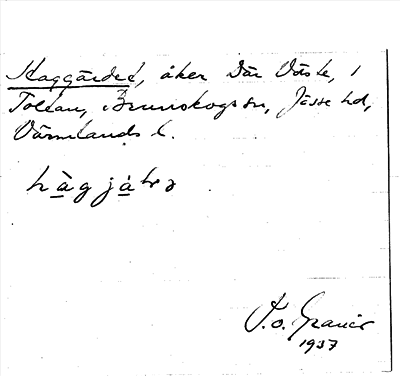 Haggärdet, åker Där Väste, i
Tolean, Brunskogs sn, Jösse hd,
Värmlands l.
hàgjàɽə
T.o. Granér
1937